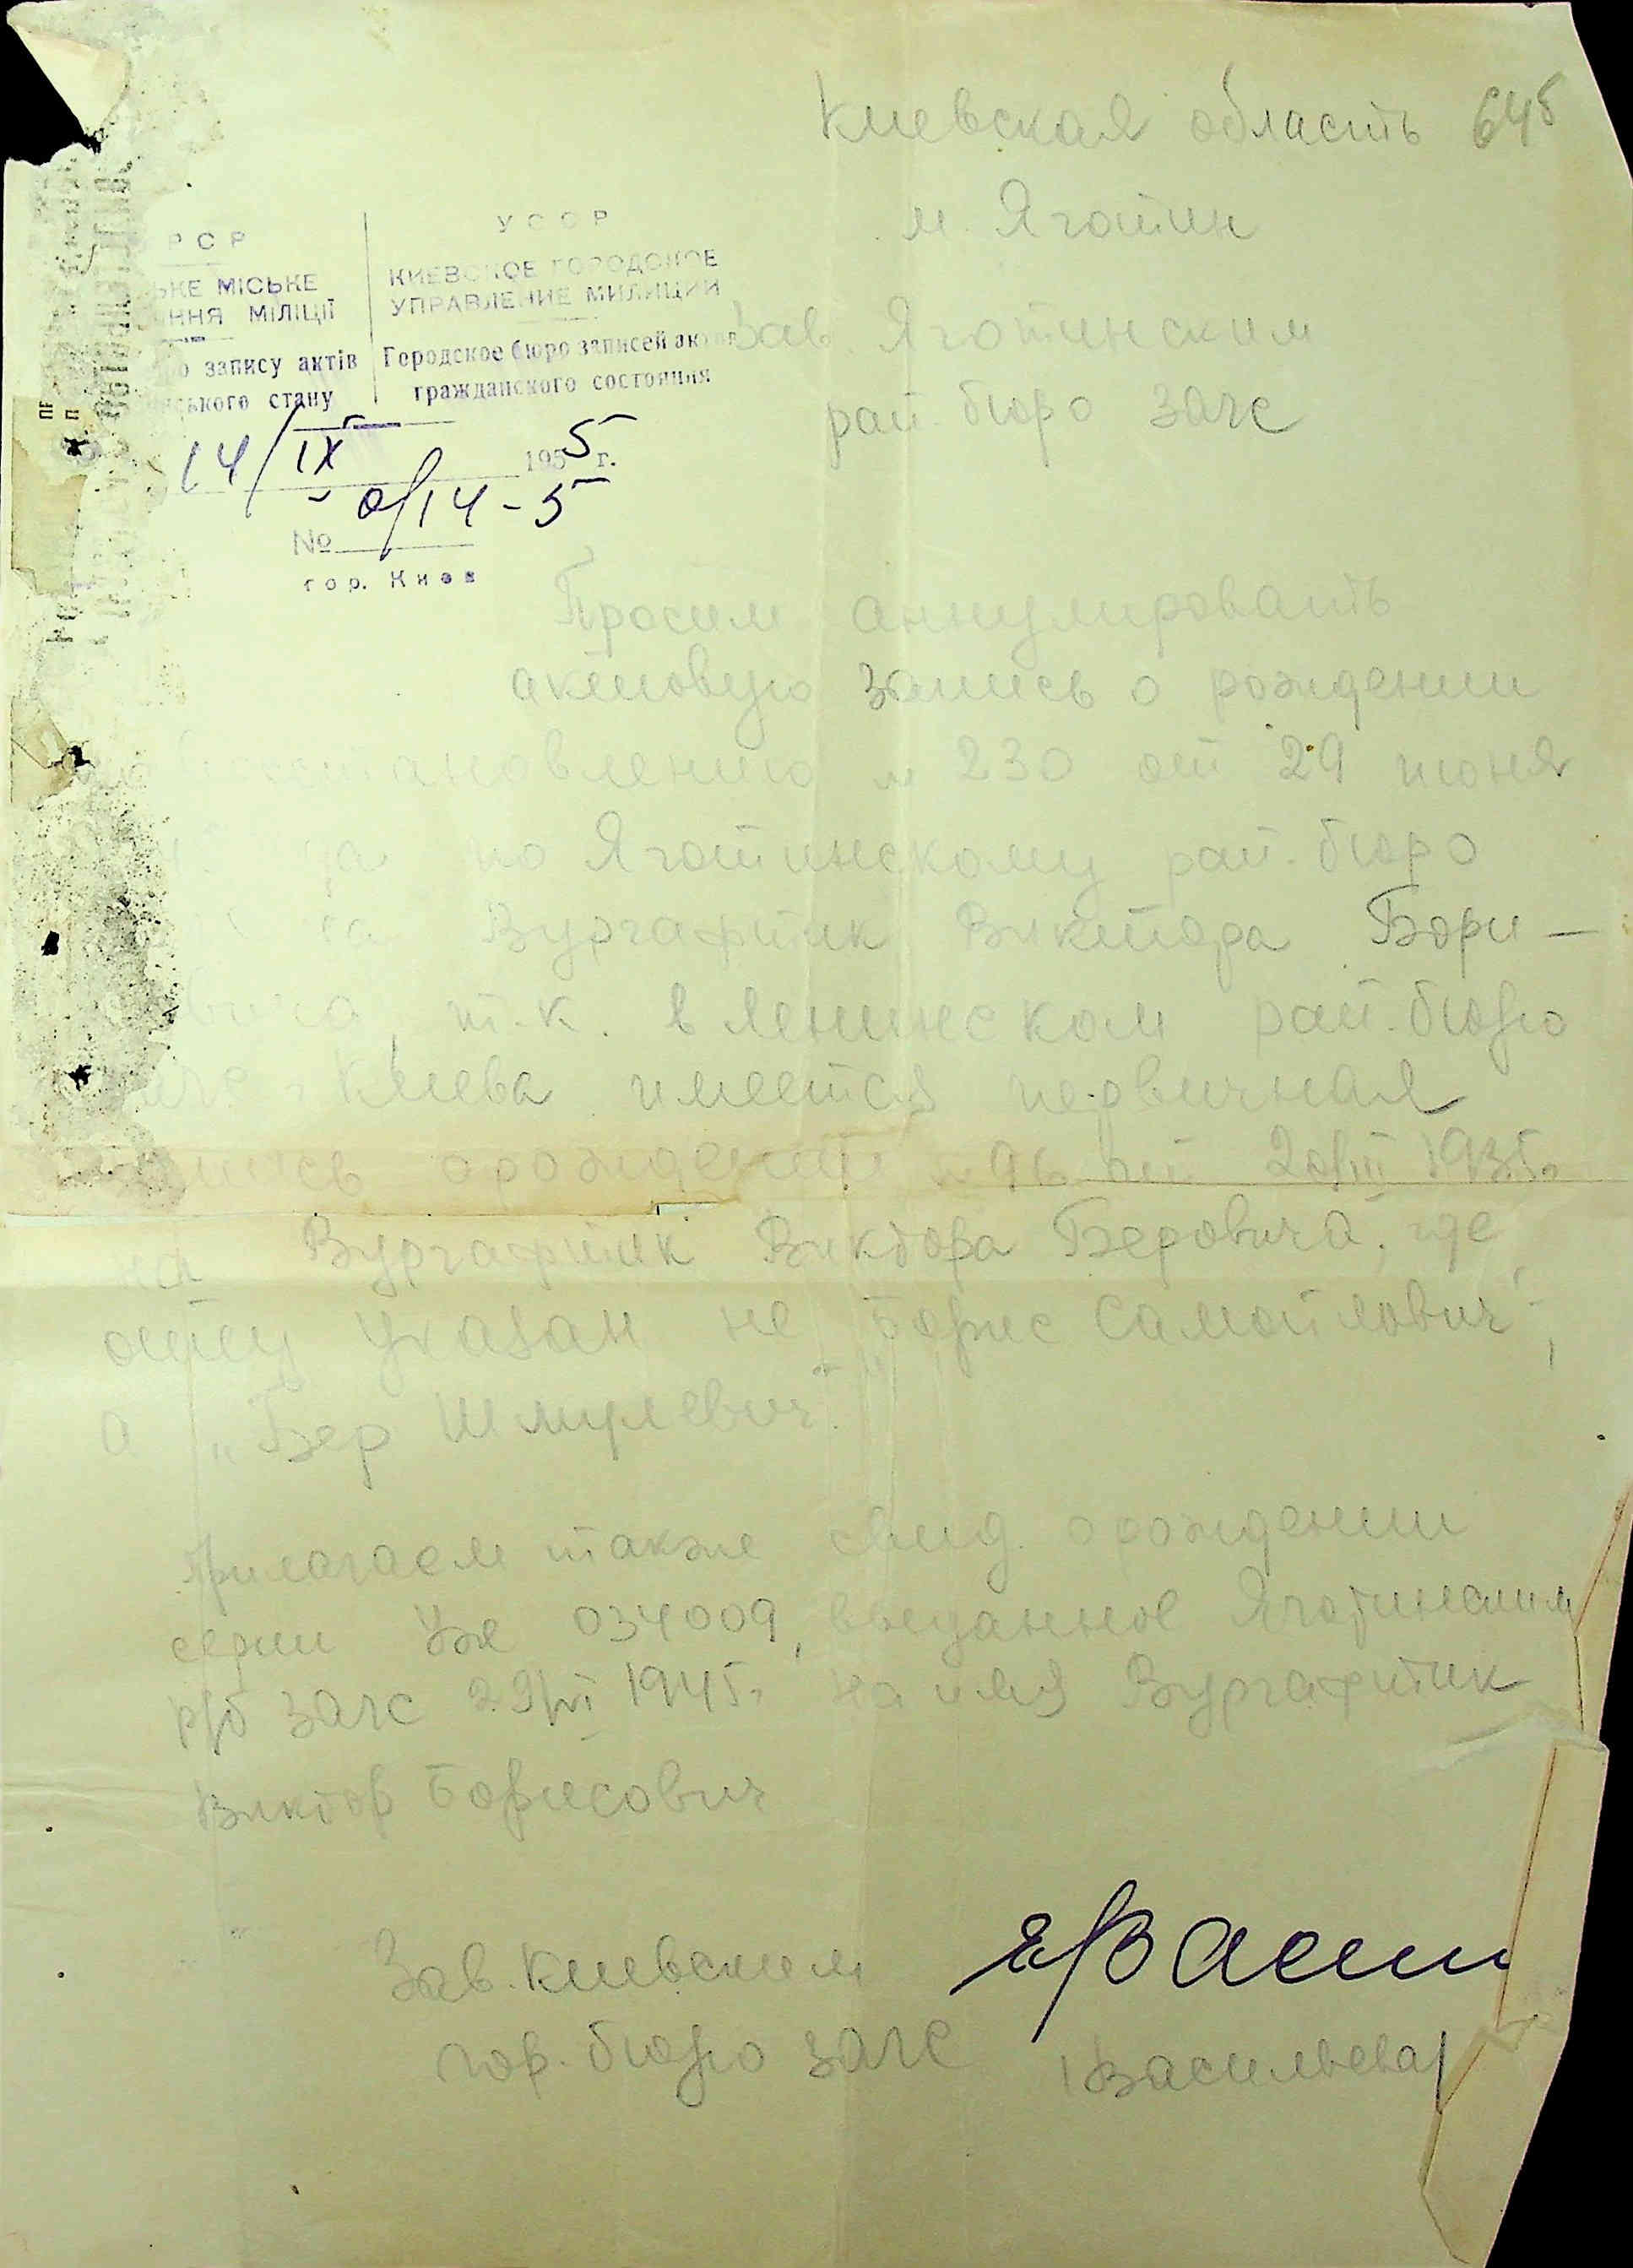 Киевская область 645
м. Яготин
Зав Яготинским
рай. бюро загс
РСР
ЬКЕ МІСЬКЕ
ННЯ МІЛІЦІЇ
о запису актів
ського стану
УССР
КИЕВСКОЕ ГОРОДСКОЕ
УПРАВЛЕНИЕ МИЛИЦИИ
Городское бюро записей актов
гражданского состояния
14/IX 1955 г.
№ 0/14-5
гор. Киев
Просим аннулировать
актовую запись о рождении
становлению № 230 от 29 июня
да по Яготинскому рай. бюро
на Вургафтик Виктора Бори-
вича, т.к. в Ленинском рай. бюро
загс г Киева имеется первичная
запись о рождении № 96 от 1935г.
на Вургафтик Виктора Беровича, где
отец указан не "Борис Самойлович",
а "Бер Шмулевич".
Прилагаем также свид. о рождении
серии УЖ 034009, выданное Яготинским
р/б загс 29/VI 1945г. на имя Вургафтик
Виктор Борисович
Зав. Киевским
гор. бюро загс /Васильева/